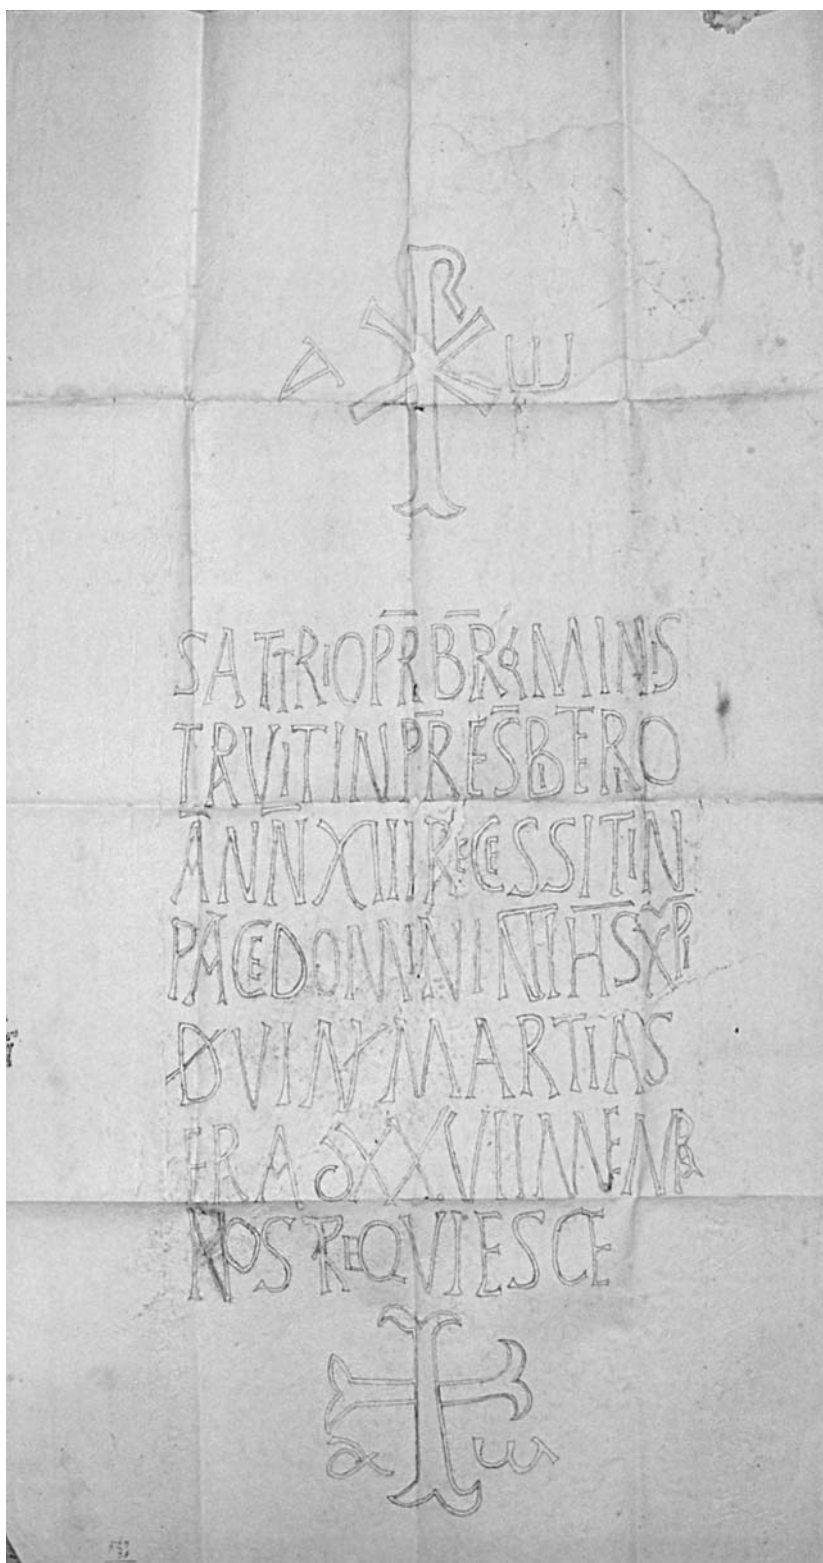 A Ω
SATTIRIO PRBR Q MINIS
TRAVIT IN PRESBITERIO
ANN XIII RECESSIT IN
PACE DOMINI NTI IHS XPI
D VI MARTIAS
ERA MEMBRA
NOS REQVIESCE
α ω